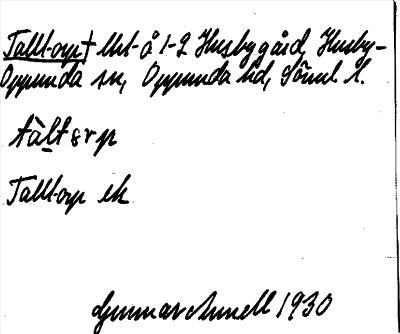 Talltorp † lht å 1-2 Husbygård, Husby-
Oppunda sn, Oppunda hd, Söml l.
tàltərp
Talltorp ek
Gunnar Linnell 1930